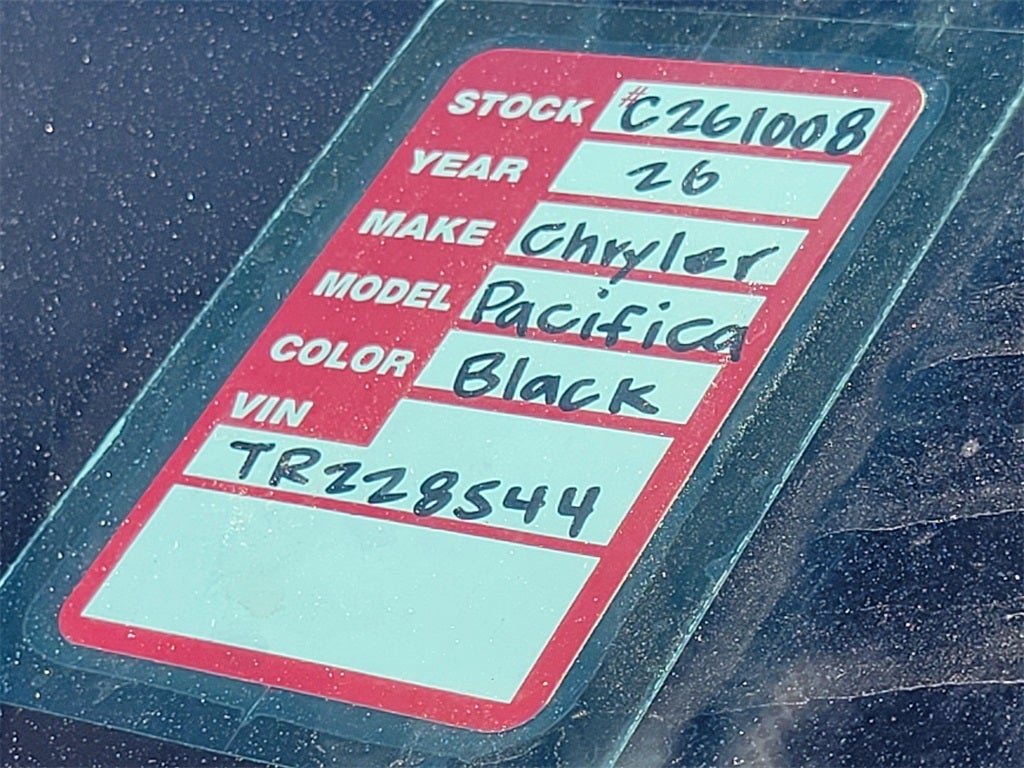 STOCK #C261008
YEAR 26
MAKE Chryler
MODEL Pacifica
COLOR Black
VIN
TR228544